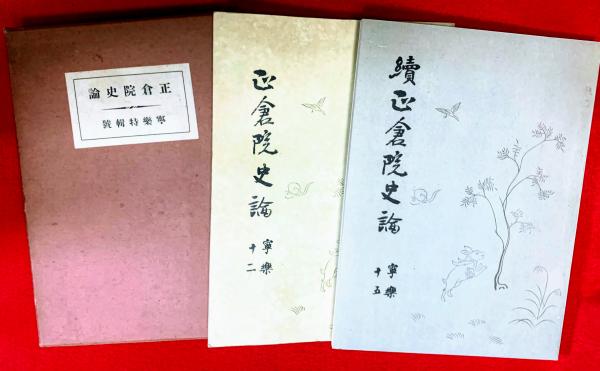 正倉院史論
寧樂特輯號
正倉院史論
寧樂
十二
續正倉院史論
寧樂
十五